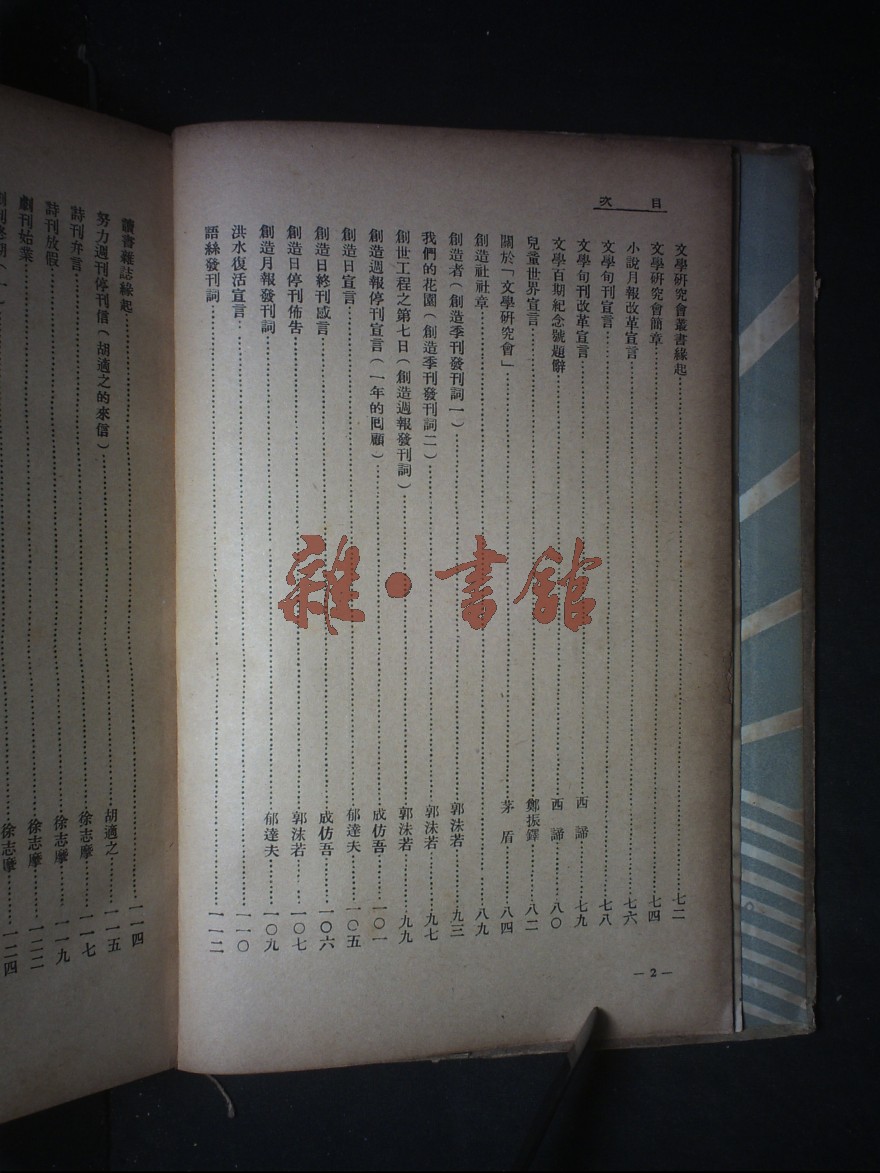 目次
文學研究會叢書緣起……七二
文學研究會簡章……七四
小說月報改革宣言……七六
文學旬刊宣言……七八
文學旬刊改革宣言……西諦……七九
文學百期紀念號題辭……西諦……八〇
兒童世界宣言……鄭振鐸……八二
關於「文學研究會」……茅盾……八四
創造社社章……八九
創造者(創造季刊發刊詞一)……郭沫若……九三
我們的花園(創造季刊發刊詞二)……郭沫若……九七
創世工程之第七日(創造週報發刊詞)……郭沫若……九九
創造週報停刊宣言(一年的囘顧)……成仿吾……一〇一
創造日宣言……郁達夫……一〇五
創造日終刊感言……成仿吾……一〇六
創造日停刊佈告……郭沫若……一〇七
創造月報發刊詞……郁達夫……一〇九
洪水復活宣言……一一〇
語絲發刊詞……一一二
—2—
讀書雜誌緣起……一一四
努力週刊停刊信(胡適之的來信)……胡適之……一一五
詩刊弁言……徐志摩……一一七
詩刊放假……徐志摩……一一九
劇刊始業……徐志摩……一二二
徐志摩……一二四
雜•書館